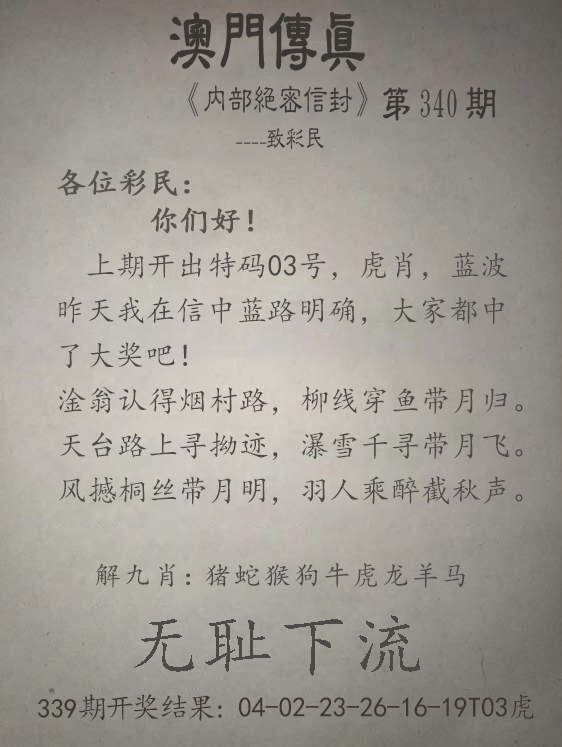 澳門傳眞
《内部絕密信封》第340期
----致彩民
各位彩民：
你们好！
上期开出特码03号，虎肖，蓝波
昨天我在信中蓝路明确，大家都中
了大奖吧！
淦翁认得烟村路，柳线穿鱼带月归。
天台路上寻拗迹，瀑雪千寻带月飞。
风撼桐丝带月明，羽人乘醉截秋声。
解九肖：猪蛇猴狗牛虎龙羊马
无耻下流
339期开奖结果：04-02-23-26-16-19T03虎